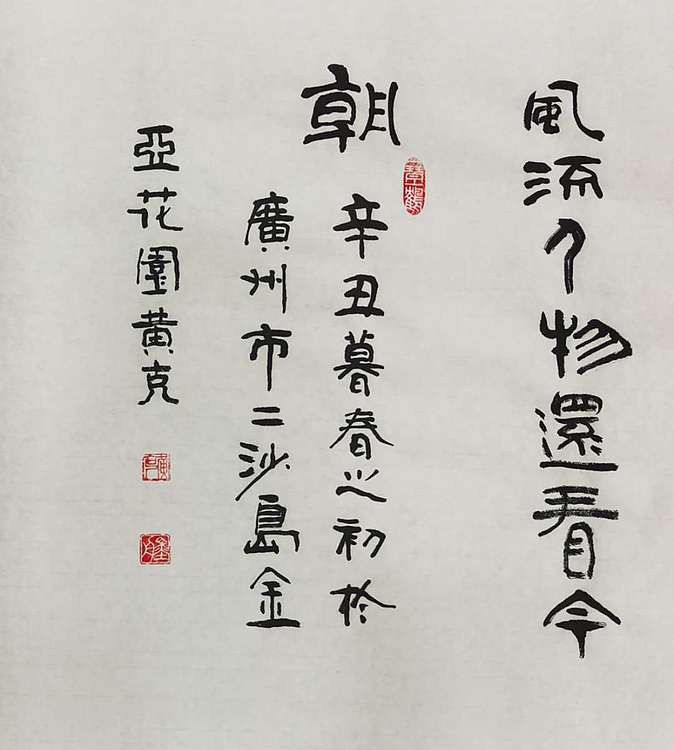 風流人物還看今
朝 辛丑暮春之初於
廣州市二沙島金
亞花園黄克